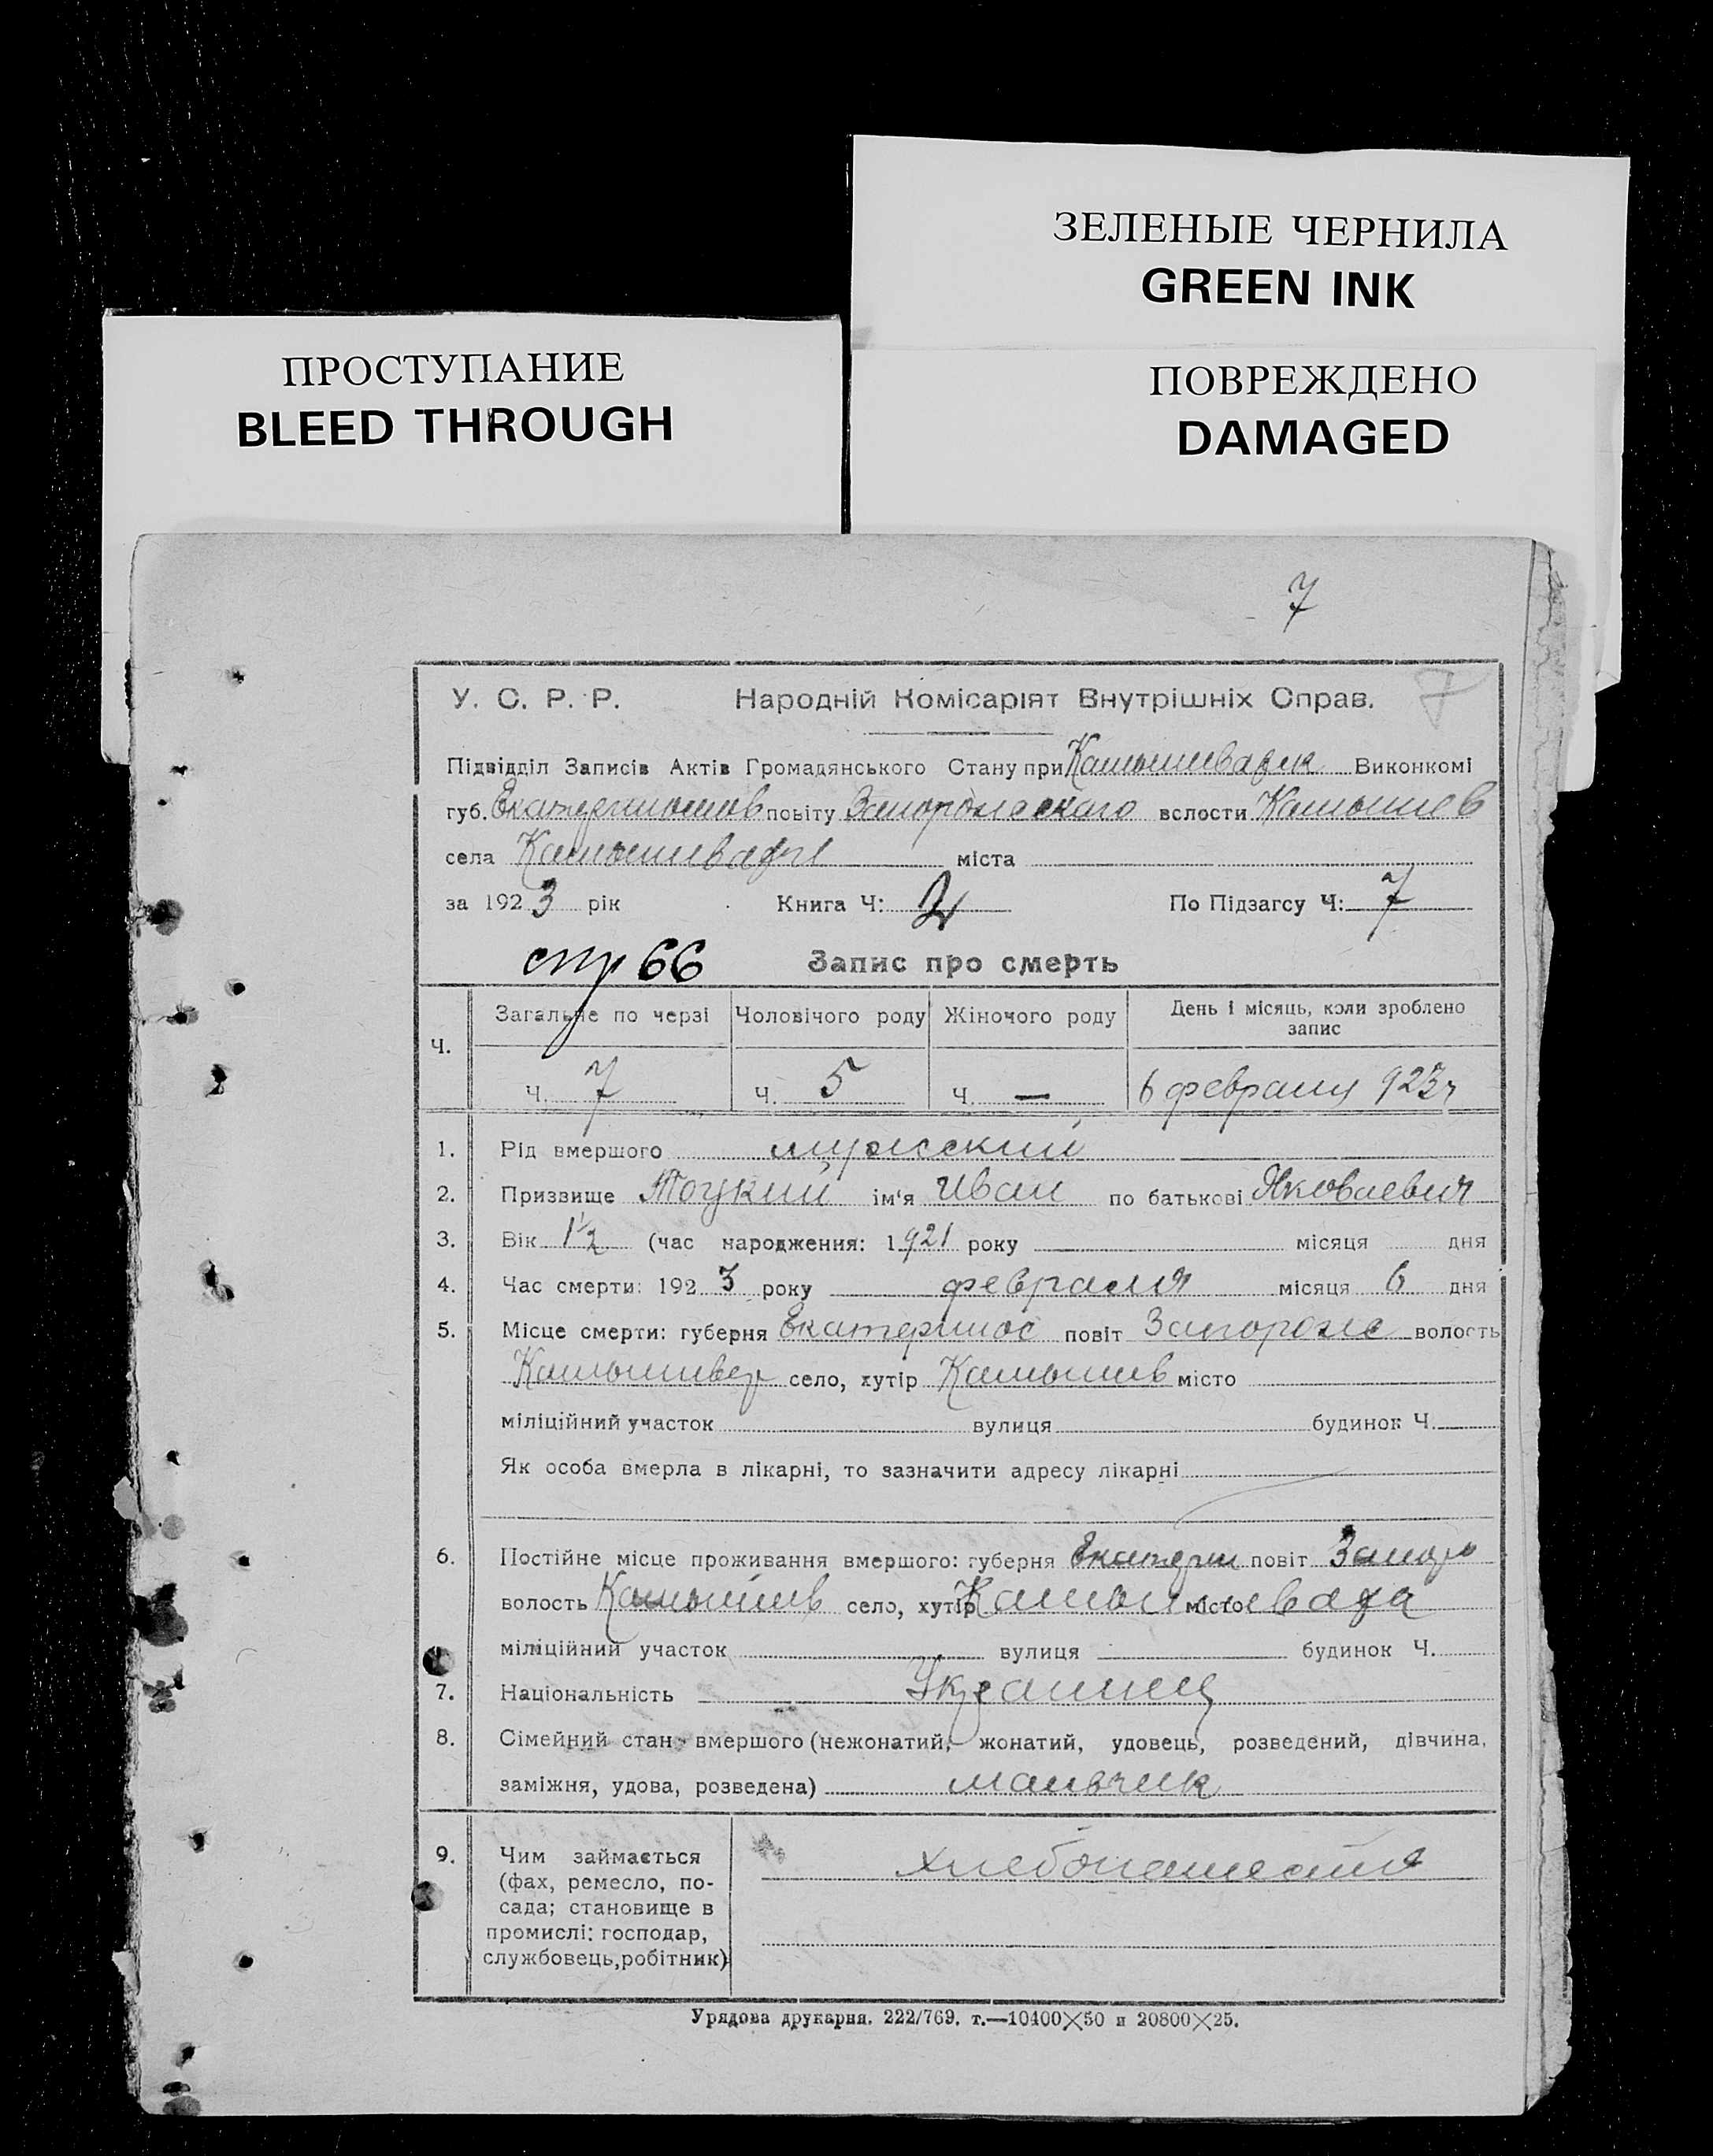 ЗЕЛЕНЫЕ ЧЕРНИЛА
GREEN INK
ПРОСТУПАНИЕ
BLEED THROUGH
ПОВРЕЖДЕНО
DAMAGED
7
У. С. Р. Р. Народній Комісаріят Внутрішніх Справ. 7
Підвідділ Записів Актів Громадянського Стану при Виконкомі
губ. Екатеринослав повіту Запорожскаго волости Камышев
села Камышевахи міста
за 1923 рік Книга Ч: 2 По Підзагсу Ч: 7
стр 66 Запис про смерть
Ч. Загальне по черзі Чоловічого роду Жіночого роду День і місяць, коли зроблено запис
Ч. 7 Ч. 5 Ч. — 6 февраля 923 г
1. Рід вмершого мужский
2. Призвище Тоцкий ім'я Иван по батькові Яковлевич
3. Вік 1½ (час народження: 1921 року місяця дня
4. Час смерти: 1923 року февраля місяця 6 дня
5. Місце смерти: губерня Екатеринос повіт Запорожс волость
Камышевах село, хутір Камышев місто
міліційний участок вулиця будинок Ч.
Як особа вмерла в лікарні, то зазначити адресу лікарні
6. Постійне місце проживання вмершого: губерня Екатерин повіт Запор
волость Камышев село, хутір Камышеваха місто
міліційний участок вулиця будинок Ч.
7. Національність Украинец
8. Сімейний стан вмершого (нежонатий, жонатий, удовець, розведений, дівчина,
заміжня, удова, розведена) мальчик
9. Чим займається хлебопашество
(фах, ремесло, по-
сада; становище в
промислі: господар,
службовець, робітник)
Урядова друкарня. 222/769. т.—10400×50 и 20800×25.